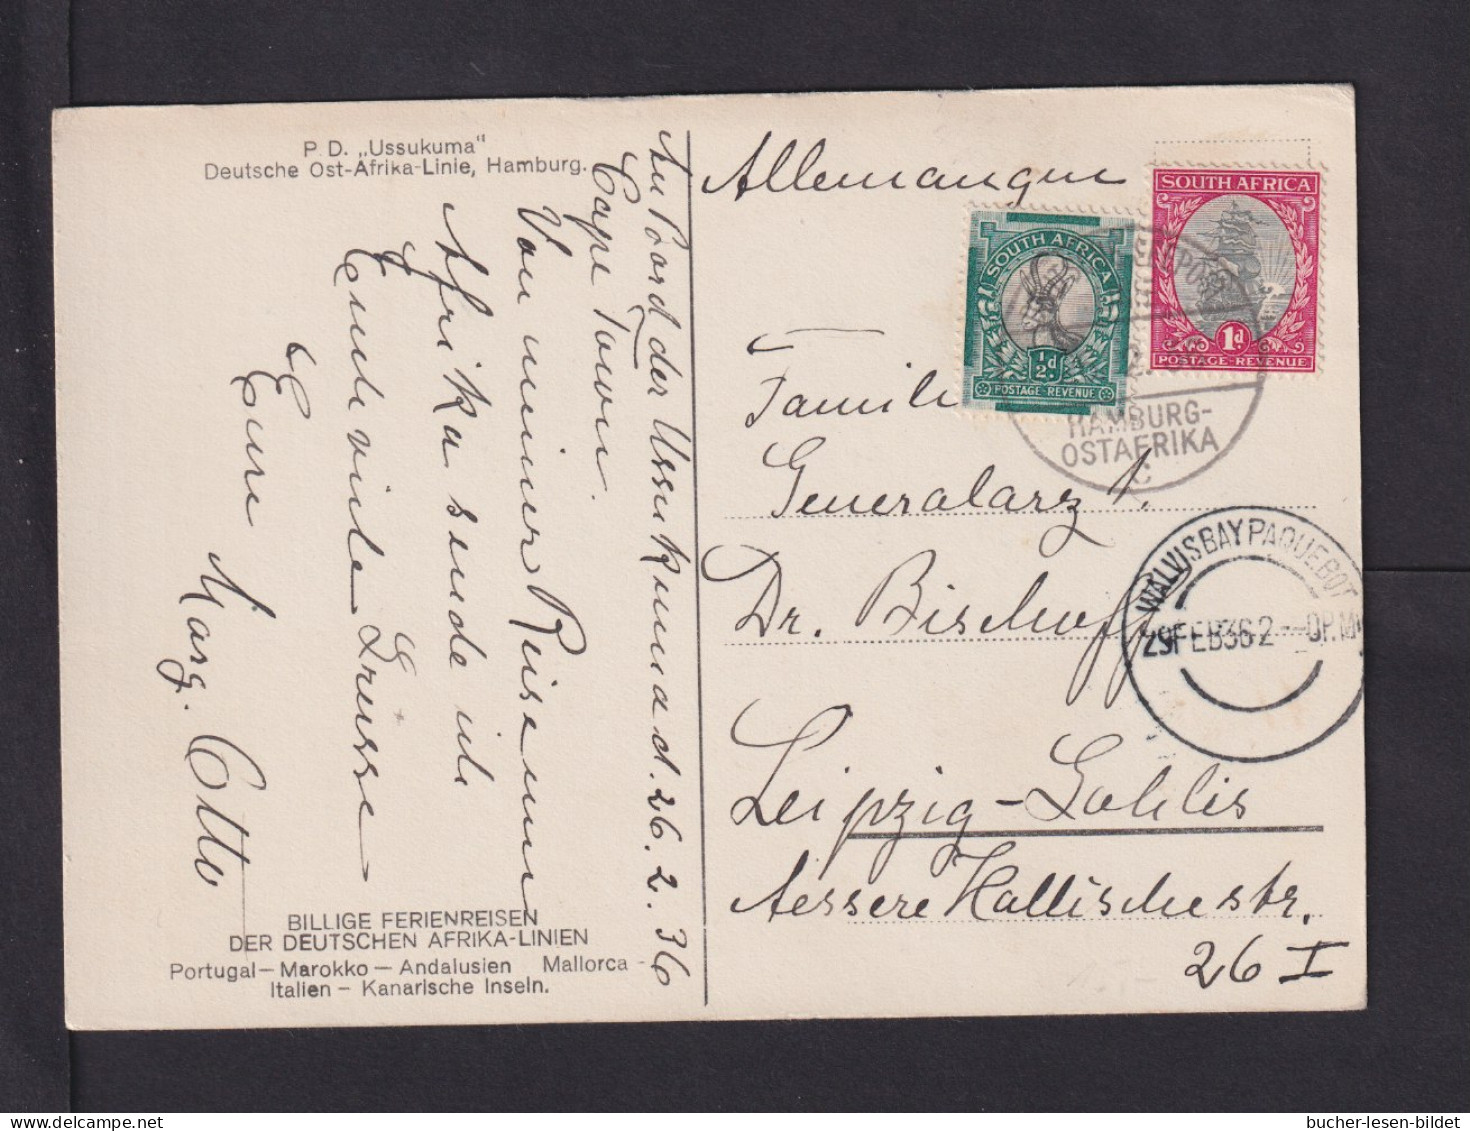 P. D. „Ussukuma"
Deutsche Ost-Afrika-Linie, Hamburg.
An Bord der Ussukuma d. 26. 2. 36
Cape Town.
Von meiner Reise
Afrika sende ich
Euch viele Grüsse
Eure
Marg. Otto
BILLIGE FERIENREISEN
DER DEUTSCHEN AFRIKA-LINIEN
Portugal — Marokko — Andalusien Mallorca -
Italien — Kanarische Inseln.
SOUTH AFRICA
1d
POSTAGE-REVENUE
SOUTH AFRICA
½d.
POSTAGE-REVENUE
HAMBURG-
OSTAFRIKA
C
WALVIS BAY PAQUEBOT
29 FEB 36 2 - 0 P.M
Familie
Generalarzt
Dr. Bischoff
Leipzig-Gohlis
Aessere Hallischestr.
26 I
bucher-lesen-bildet